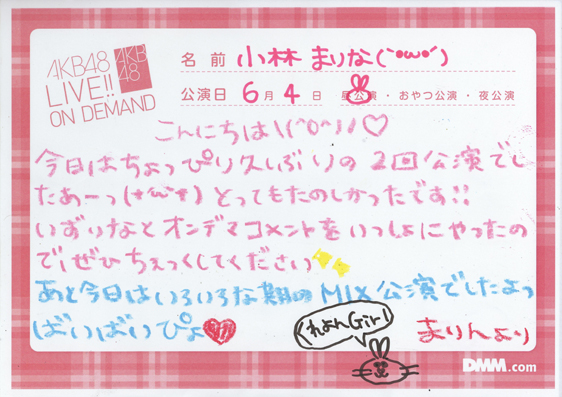 AKB48
LIVE!!
ON DEMAND
AKB
48
名前 小林 まりな(`・ω・´)
公演日 6月4日 昼公演・おやつ公演・夜公演
こんにちは\(^o^)/♡
今日はちょっぴり久しぶりの2回公演でし
たあーっ(*´ω`*)とってもたのしかったです!!
いずりなとオンデマコメントをいっしょにやったの
で!ぜひちぇっくしてください
あと今日はいろいろな期のMIX公演でしたよっ
ばいばいぴょ
くれよんGirl
まりんより
DMM.com